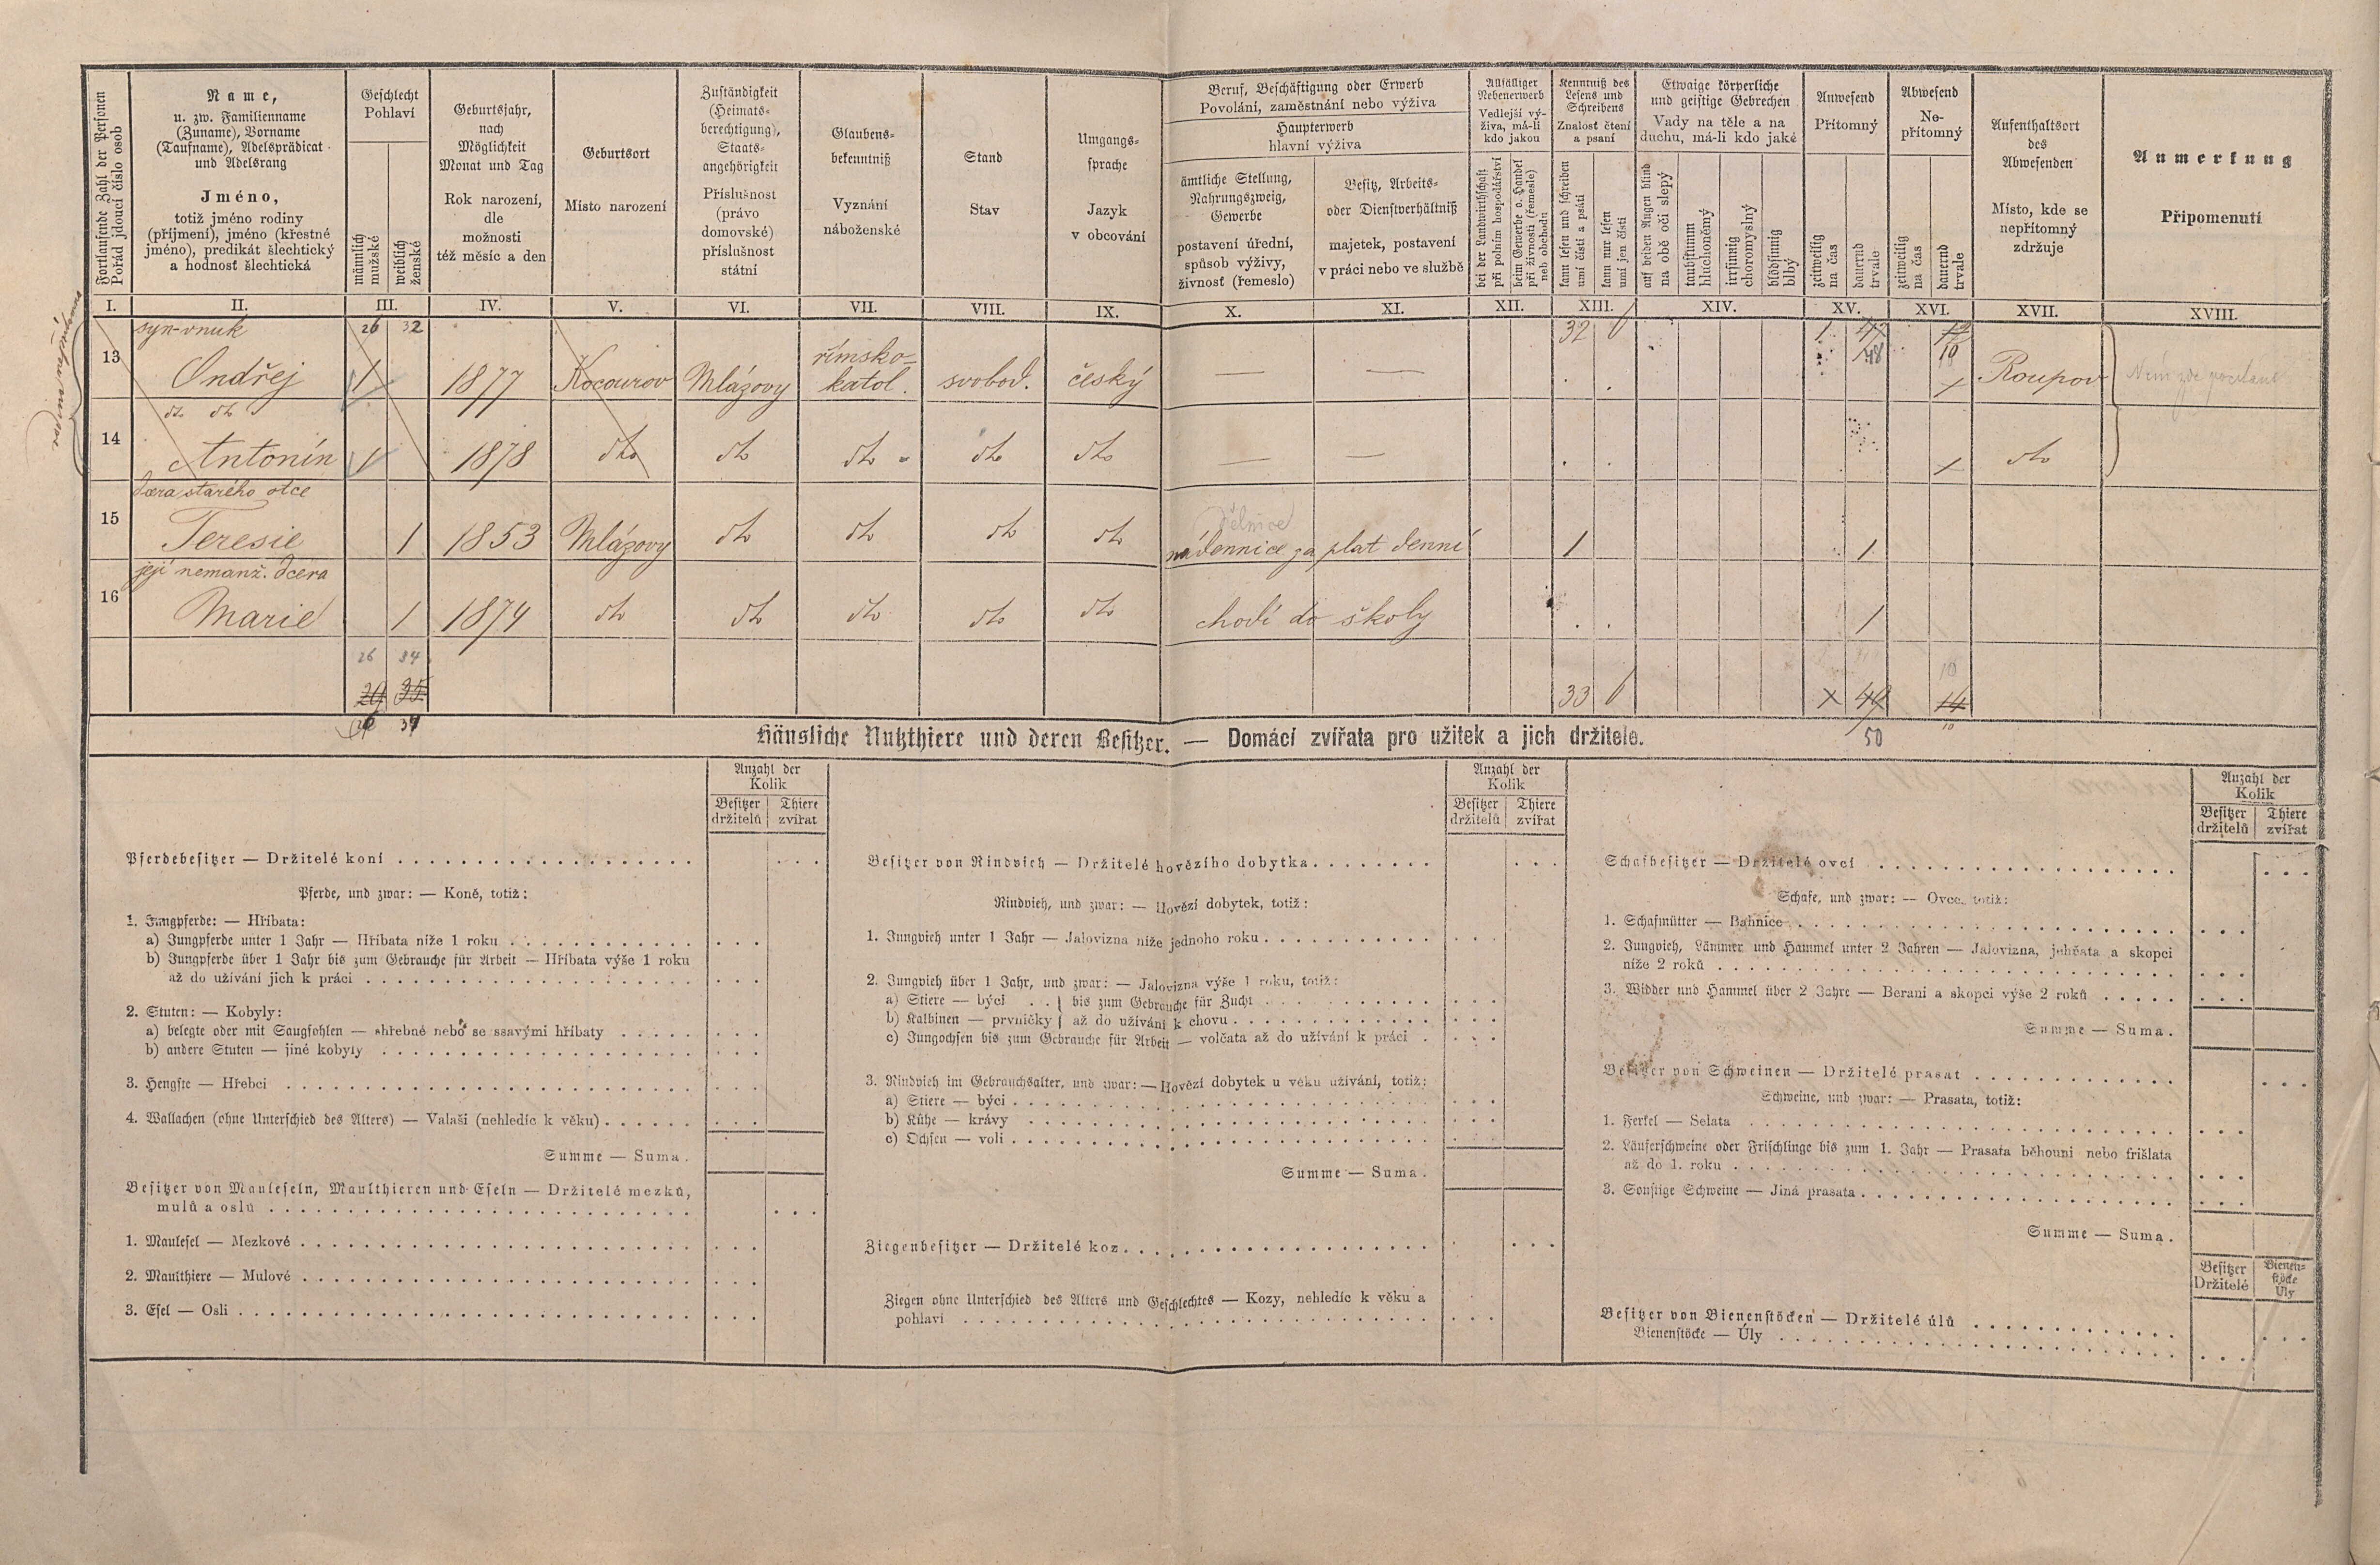 Fortlaufende Zahl der Personen
Pořád jdoucí číslo osob
Name,
u. zw. Familienname
(Zuname), Vorname
(Taufname), Adelsprädicat
und Adelsrang
Jméno,
totiž jméno rodiny
(příjmení), jméno (křestné
jméno), predikát šlechtický
a hodnosť šlechtická
Geschlecht
Pohlaví
männlich
mužské
weiblich
ženské
Geburtsjahr,
nach
Möglichkeit
Monat und Tag
Rok narození,
dle
možnosti
též měsíc a den
Geburtsort
Místo narození
Zuständigkeit
(Heimats-
berechtigung),
Staats-
angehörigkeit
Příslušnost
(právo
domovské)
příslušnost
státní
Glaubens-
bekenntniß
Vyznání
náboženské
Stand
Stav
Umgangs-
sprache
Jazyk
v obcování
Beruf, Beschäftigung oder Erwerb
Povolání, zaměstnání nebo výživa
Haupterwerb
hlavní výživa
ämtliche Stellung,
Nahrungszweig,
Gewerbe
postavení úřední,
spůsob výživy,
živnosť (řemeslo)
Besitz, Arbeits-
oder Dienstverhältniß
majetek, postavení
v práci nebo ve službě
Allfälliger
Nebenerwerb
Vedlejší vý-
živa, má-li
kdo jakou
bei der Landwirthschaft
při polním hospodářství
beim Gewerbe o. Handel
při živnosti (řemesle)
neb obchodu
Kenntniß des
Lesens und
Schreibens
Znalosť čtení
a psaní
kann lesen und schreiben
umí čísti a psáti
kann nur lesen
umí jen čísti
Etwaige körperliche
und geistige Gebrechen
Vady na těle a na
duchu, má-li kdo jaké
auf beiden Augen blind
na obě oči slepý
taubstumm
hluchoněmý
irrsinnig
choromyslný
blödsinnig
blbý
Anwesend
Přítomný
zeitweilig
na čas
dauernd
trvale
Abwesend
Ne-
přítomný
zeitweilig
na čas
dauernd
trvale
Aufenthaltsort
des
Abwesenden
Místo, kde se
nepřítomný
zdržuje
Anmerkung
Připomenutí
I. II. III. IV. V. VI. VII. VIII. IX. X. XI. XII. XIII. XIV. XV. XVI. XVII. XVIII.
syn-vnuk 26 32 32 1 1 47 12
48 10
13 Ondřej 1 1877 Kocourov Mlázovy římsko-katol. svobod. český — — Roupov Není zde
dto dto
14 Antonín 1 1878 dto dto dto dto dto — — dto
dcera starého otce
15 Teresie 1 1853 Mlázovy dto dto dto dto dělnice nádennice za plat denní 1 1
její nemanž. dcera
16 Marie 1 1874 dto dto dto dto dto chodí do školy 1
26 34 10
29 35 33 1 49 14
26 34 50 10
Häusliche Nutzthiere und deren Besitzer. — Domácí zvířata pro užitek a jich držitele.
Anzahl der
Kolik
Besitzer
držitelů
Thiere
zvířat
Pferdebesitzer — Držitelé koní
Pferde, und zwar: — Koně, totiž:
1. Jungpferde: — Hříbata:
a) Jungpferde unter 1 Jahr — Hříbata níže 1 roku
b) Jungpferde über 1 Jahr bis zum Gebrauche für Arbeit — Hříbata výše 1 roku
až do užívání jich k práci
2. Stuten: — Kobyly:
a) belegte oder mit Saugfohlen — shřebné nebo se ssavými hříbaty
b) andere Stuten — jiné kobyly
3. Hengste — Hřebci
4. Wallachen (ohne Unterschied des Alters) — Valaši (nehledíc k věku)
Summe — Suma.
Besitzer von Mauleseln, Maulthieren und Eseln — Držitelé mezků,
mulů a oslů
1. Maulesel — Mezkové
2. Maulthiere — Mulové
3. Esel — Osli
Anzahl der
Kolik
Besitzer
držitelů
Thiere
zvířat
Besitzer von Rindvieh — Držitelé hovězího dobytka
Rindvieh, und zwar: — Hovězí dobytek, totiž:
1. Jungvieh unter 1 Jahr — Jalovizna níže jednoho roku
2. Jungvieh über 1 Jahr, und zwar: — Jalovizna výše 1 roku, totiž:
a) Stiere — býci . . } bis zum Gebrauche für Zucht
b) Kalbinen — prvničky } až do užívání k chovu
c) Jungochsen bis zum Gebrauche für Arbeit — volčata až do užívání k práci
3. Rindvieh im Gebrauchsalter, und zwar: — Hovězí dobytek u věku užívání, totiž:
a) Stiere — býci
b) Kühe — krávy
c) Ochsen — voli
Summe — Suma.
Ziegenbesitzer — Držitelé koz
Ziegen ohne Unterschied des Alters und Geschlechtes — Kozy, nehledíc k věku a
pohlaví
Anzahl der
Kolik
Besitzer
držitelů
Thiere
zvířat
Schafbesitzer — Držitelé ovcí
Schafe, und zwar: — Ovce, totiž:
1. Schafmütter — Bahnice
2. Jungvieh, Lämmer und Hammel unter 2 Jahren — Jalovizna, jehňata a skopci
níže 2 roků
3. Widder und Hammel über 2 Jahre — Berani a skopci výše 2 roků
Summe — Suma.
Besitzer von Schweinen — Držitelé prasat
Schweine, und zwar: — Prasata, totiž:
1. Ferkel — Selata
2. Läuferschweine oder Frischlinge bis zum 1. Jahr — Prasata běhouni nebo frišlata
až do 1. roku
3. Sonstige Schweine — Jiná prasata
Summe — Suma.
Besitzer
Držitelé
Bienen-
stöcke
Úly
Besitzer von Bienenstöcken — Držitelé úlů
Bienenstöcke — Úly